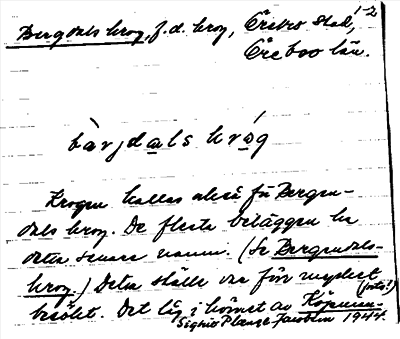 1-2
Bergdals krog, f.d. krog, Örebro stad,
Örebro län.
bàrjdals króg
Krogen kallas också för Bergen-
dals krog. De flesta beläggen ha
detta senare namn. (Se Bergendals-
krog.) Detta ställe var förr mycket
besökt. Det låg i hörnet av Köpman-
(forts!)
Signe 1944.